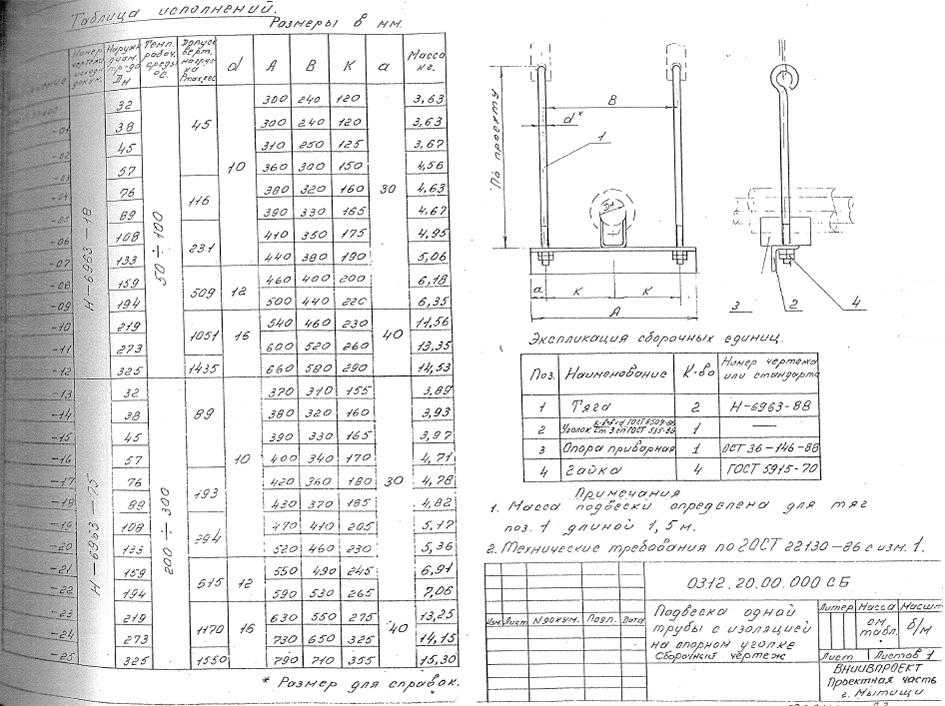 Таблица исполнений.
Размеры в мм.
Номер чертежа Наружн. диам. тр-да Dн Темп. рабоч. среды °С. Допуск. верт. нагрузка Pmax, кгс d А В К а Масса кг.
32 45 10 300 240 120 30 3,63
-01 38 300 240 120 3,63
-02 45 310 250 125 3,67
-03 57 360 300 150 4,56
-04 76 116 380 320 160 4,63
-05 89 390 330 165 4,67
-06 108 231 410 350 175 4,95
-07 133 440 380 190 5,06
-08 159 509 12 460 400 200 6,18
-09 194 500 440 220 6,35
-10 219 1051 16 540 460 230 40 11,56
-11 273 600 520 260 13,35
-12 325 1435 660 580 290 14,53
Н-6963-18
50÷100
-13 32 89 10 370 310 155 30 3,89
-14 38 380 320 160 3,93
-15 45 390 330 165 3,97
-16 57 400 340 170 4,71
-17 76 193 420 360 180 4,78
-18 89 430 370 185 4,82
-19 108 294 470 410 205 5,17
-20 133 520 460 230 5,36
-21 159 615 12 550 490 245 6,91
-22 194 590 530 265 7,06
-23 219 1170 16 630 550 275 40 13,25
-24 273 730 650 325 14,15
-25 325 1550 790 710 355 15,30
Н-6963-75
200÷300
* Размер для справок.
По проекту
В
d*
1
Dн
а К К
А
3 2 4
Экспликация сборочных единиц.
Поз. Наименование К-во Номер чертежа или стандарта
1 Тяга 2 Н-6963-88
2 Уголок 1 —
3 Опора приварная 1 ОСТ 36-146-88
4 Гайка 4 ГОСТ 5915-70
Примечания
1. Масса подвески определена для тяг
поз. 1 длиной 1,5 м.
2. Технические требования по ГОСТ 22130-86 с изм. 1.
0312.20.00.000 СБ
Изм. Лист N докум. Подп. Дата
Подвеска одной
трубы с изоляцией
на опорном уголке
Сборочный чертеж
Литер Масса Масшт
см. табл. б/м
Лист Листов 1
ВНИИВПРОЕКТ
Проектная часть
г. Мытищи